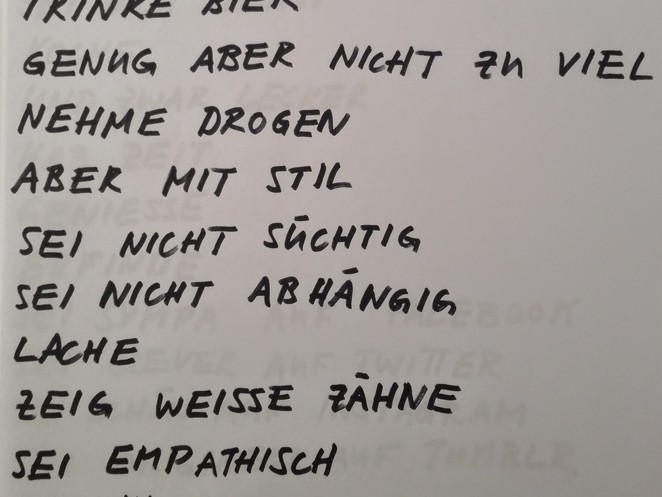 TRINKE BIER
GENUG ABER NICHT ZU VIEL
NEHME DROGEN
ABER MIT STIL
SEI NICHT SÜCHTIG
SEI NICHT ABHÄNGIG
LACHE
ZEIG WEISSE ZÄHNE
SEI EMPATHISCH